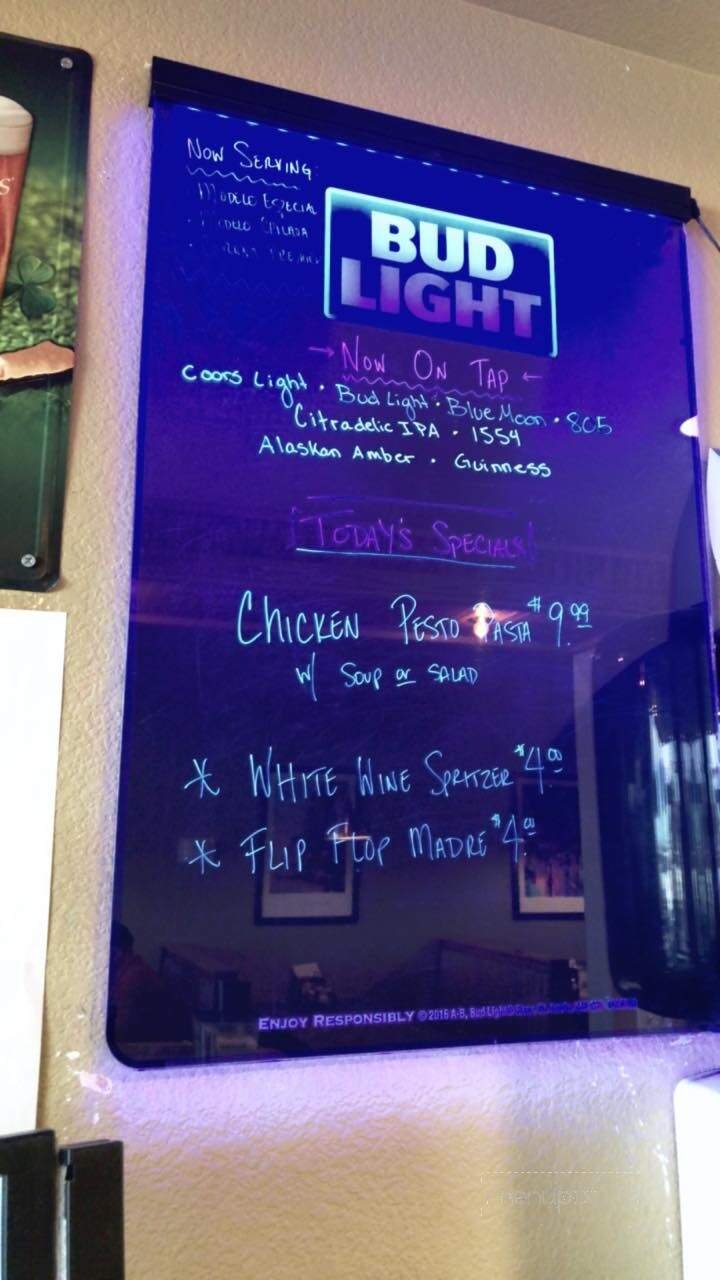 Now Serving
Modelo Especial
Modelo Chelada
BUD
LIGHT
→ Now On Tap ←
Coors Light • Bud Light • Blue Moon • 805
Citradelic IPA • 1554
Alaskan Amber • Guinness
Today's Specials!
Chicken Pesto Pasta $9.99
w/ Soup or Salad
* White Wine Spritzer $4.00
* Flip Flop Madre $4.00
Enjoy Responsibly © 2016 A-B, Bud Light®
menupix